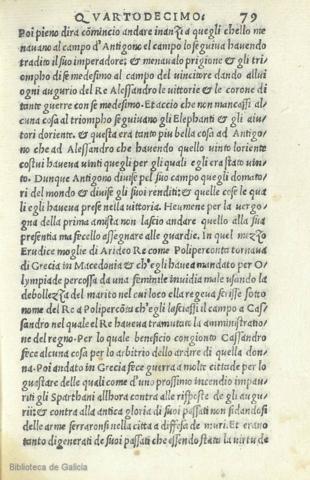 QVARTODECIMO: 79
Poi pieno dira cõmincio andare inanzi a quegli chello me
nauano al campo d'Antigono el campo lo seguiua hauendo
tradito il suo imperadore; & menaualo prigione & gli tri-
ompho di se medesimo al campo del uincitore dando allui
ogni augurio del Re Alessandro le uittorie & le corone di
tante guerre con se medesimo. Et accio che non mancassi al-
cuna cosa al triompho seguiuano gli Elephanti & gli aiu-
tori doriente. & questa era tanto piu bella cosa ad Antigo
no che ad Alessandro che hauendo quello uinto loriente
costui haueua uinti quegli per gli quali egli era stato uin-
to. Dunque Antigono diuise pel suo campo quegli domato
ri del mondo & diuise gli suoi renditi; & quelle cose le qua
li egli haueua prese nella uittoria. Heumene per la uergo-
gna della prima amista non lascio andare quello alla sua
presentia ma fecello assegnare alle guardie. In quel mezzo
Erudice moglie di Arideo Re come Poliperconta tornaua
di Grecia in Macedonia & ch'egli haueua mandato per O-
lympia de percossa da una feminile inuidia male usando la
debollezza del marito nel cui loco ella regeua scrisse sotto
nome del Re a Polipercõta ch'egli lasciassi il campo a Cas-
sandro nel quale el Re haueua tramutate la amministratio-
ne del regno. Per lo quale beneficio congionto Cassandro
fece alcuna cosa per lo arbitrio dello ardre di quella don
na. Poi andato in Grecia fece guerra a molte citta de per lo
guastare delle quali come d'uno prossimo incendio impau-
riti gli Sparthani allhora contra alle risposte de gli augu-
rii: & contra alla antica gloria di suoi passati non fidandosi
delle arme serraronsi nella citta a diffesa de muri. Et erano
tanto digenerati de suoi passati che essendo stata la uirtu de
Biblioteca de Galicia